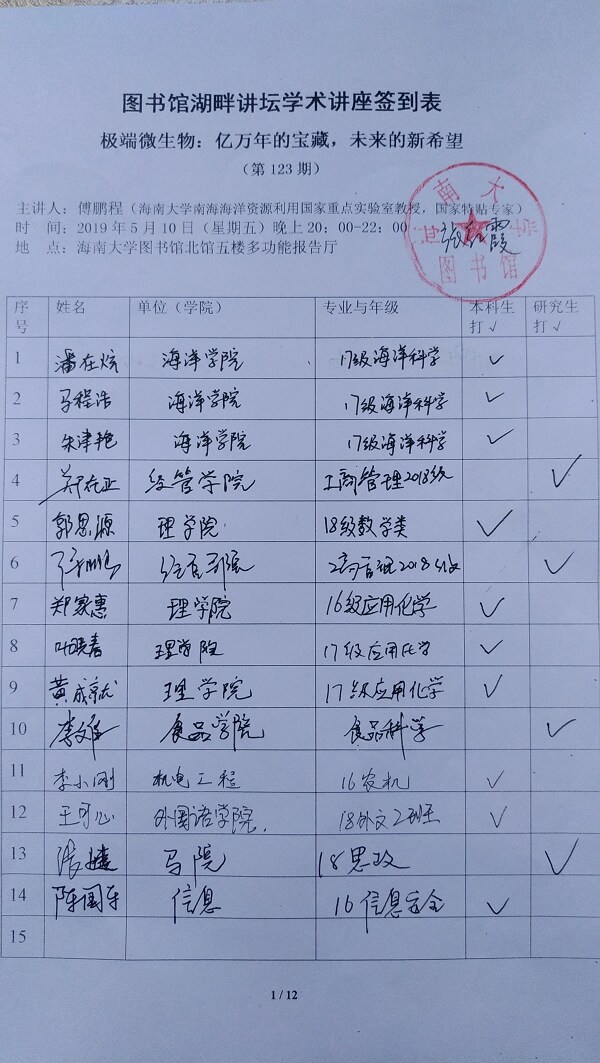 图书馆湖畔讲坛学术讲座签到表
极端微生物：亿万年的宝藏，未来的新希望
（第 123 期）
主讲人：傅鹏程（海南大学南海海洋资源利用国家重点实验室教授，国家特贴专家）
时　间：2019 年 5 月 10 日（星期五）晚上 20：00-22：00
地　点：海南大学图书馆北馆五楼多功能报告厅
图书馆
序号 姓名 单位（学院） 专业与年级 本科生打√ 研究生打√
1 潘在炫 海洋学院 17级海洋科学 √
2 马程浩 海洋学院 17级海洋科学 √
3 朱津艳 海洋学院 17级海洋科学 √
4 郑在亚 经管学院 工商管理2018级 √
5 郭思源 理学院 18级数学类 √
6 2018级 √
7 郑家惠 理学院 16级应用化学 √
8 叶晓春 理学院 17级应用化学 √
9 黄成就 理学院 17级应用化学 √
10 李 食品学院 食品科学 √
11 李小刚 机电工程 16农机 √
12 王可心 外国语学院. 18外文2班 √
13 张 马院 18思政 √
14 陈国车 信息 16信息安全 √
15
1 / 12